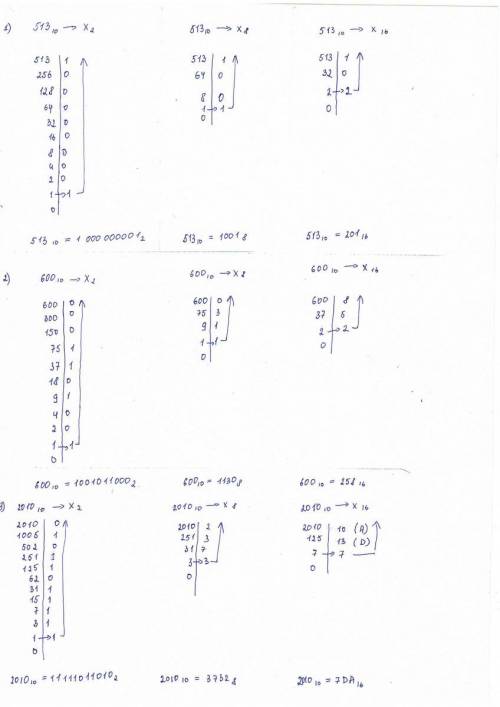 1) 513₁₀ → X₂
513 1
256 0
128 0
64 0
32 0
16 0
8 0
4 0
2 0
1 → 1
0
513₁₀ = 1 000 000 001₂
513₁₀ → X₈
513 1
64 0
8 0
1 → 1
0
513₁₀ = 1001₈
513₁₀ → X₁₆
513 1
32 0
2 → 2
0
513₁₀ = 201₁₆
2) 600₁₀ → X₂
600 0
300 0
150 0
75 1
37 1
18 0
9 1
4 0
2 0
1 → 1
0
600₁₀ = 1001011000₂
600₁₀ → X₈
600 0
75 3
9 1
1 → 1
0
600₁₀ = 1130₈
600₁₀ → X₁₆
600 8
37 5
2 → 2
0
600₁₀ = 258₁₆
3) 2010₁₀ → X₂
2010 0
1005 1
502 0
251 1
125 1
62 0
31 1
15 1
7 1
3 1
1 → 1
0
2010₁₀ = 11111011010₂
2010₁₀ → X₈
2010 2
251 3
31 7
3 → 3
0
2010₁₀ = 3732₈
2010₁₀ → X₁₆
2010 10 (A)
125 13 (D)
7 → 7
0
2010₁₀ = 7DA₁₆